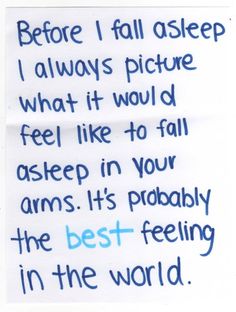 Before I fall asleep
I always picture
what it would
feel like to fall
asleep in your
arms. It's probably
the best feeling
in the world.